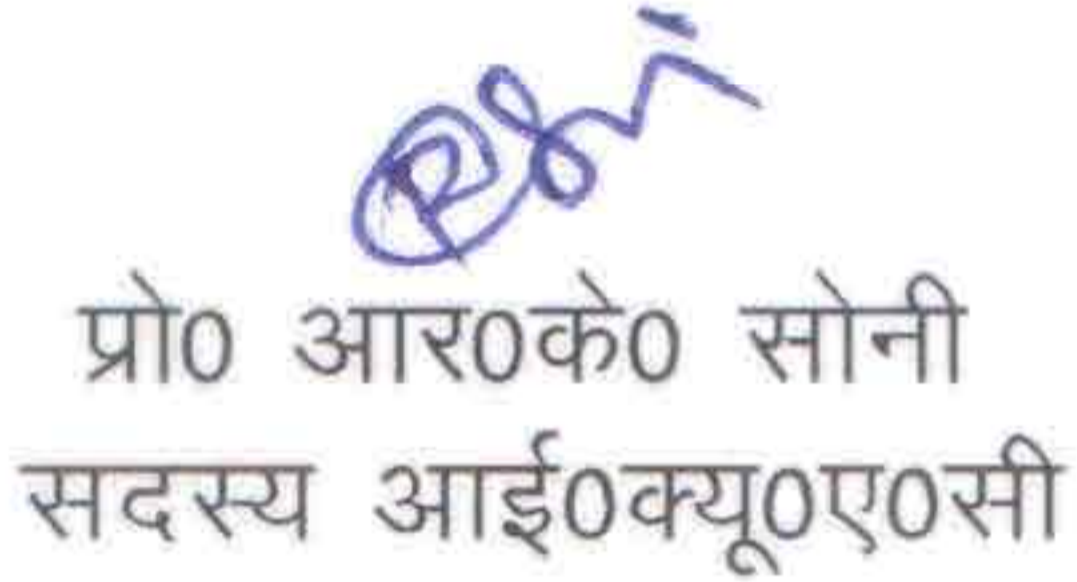 प्रो0 आर0के0 सोनी
सदस्य आई0क्यू0ए0सी